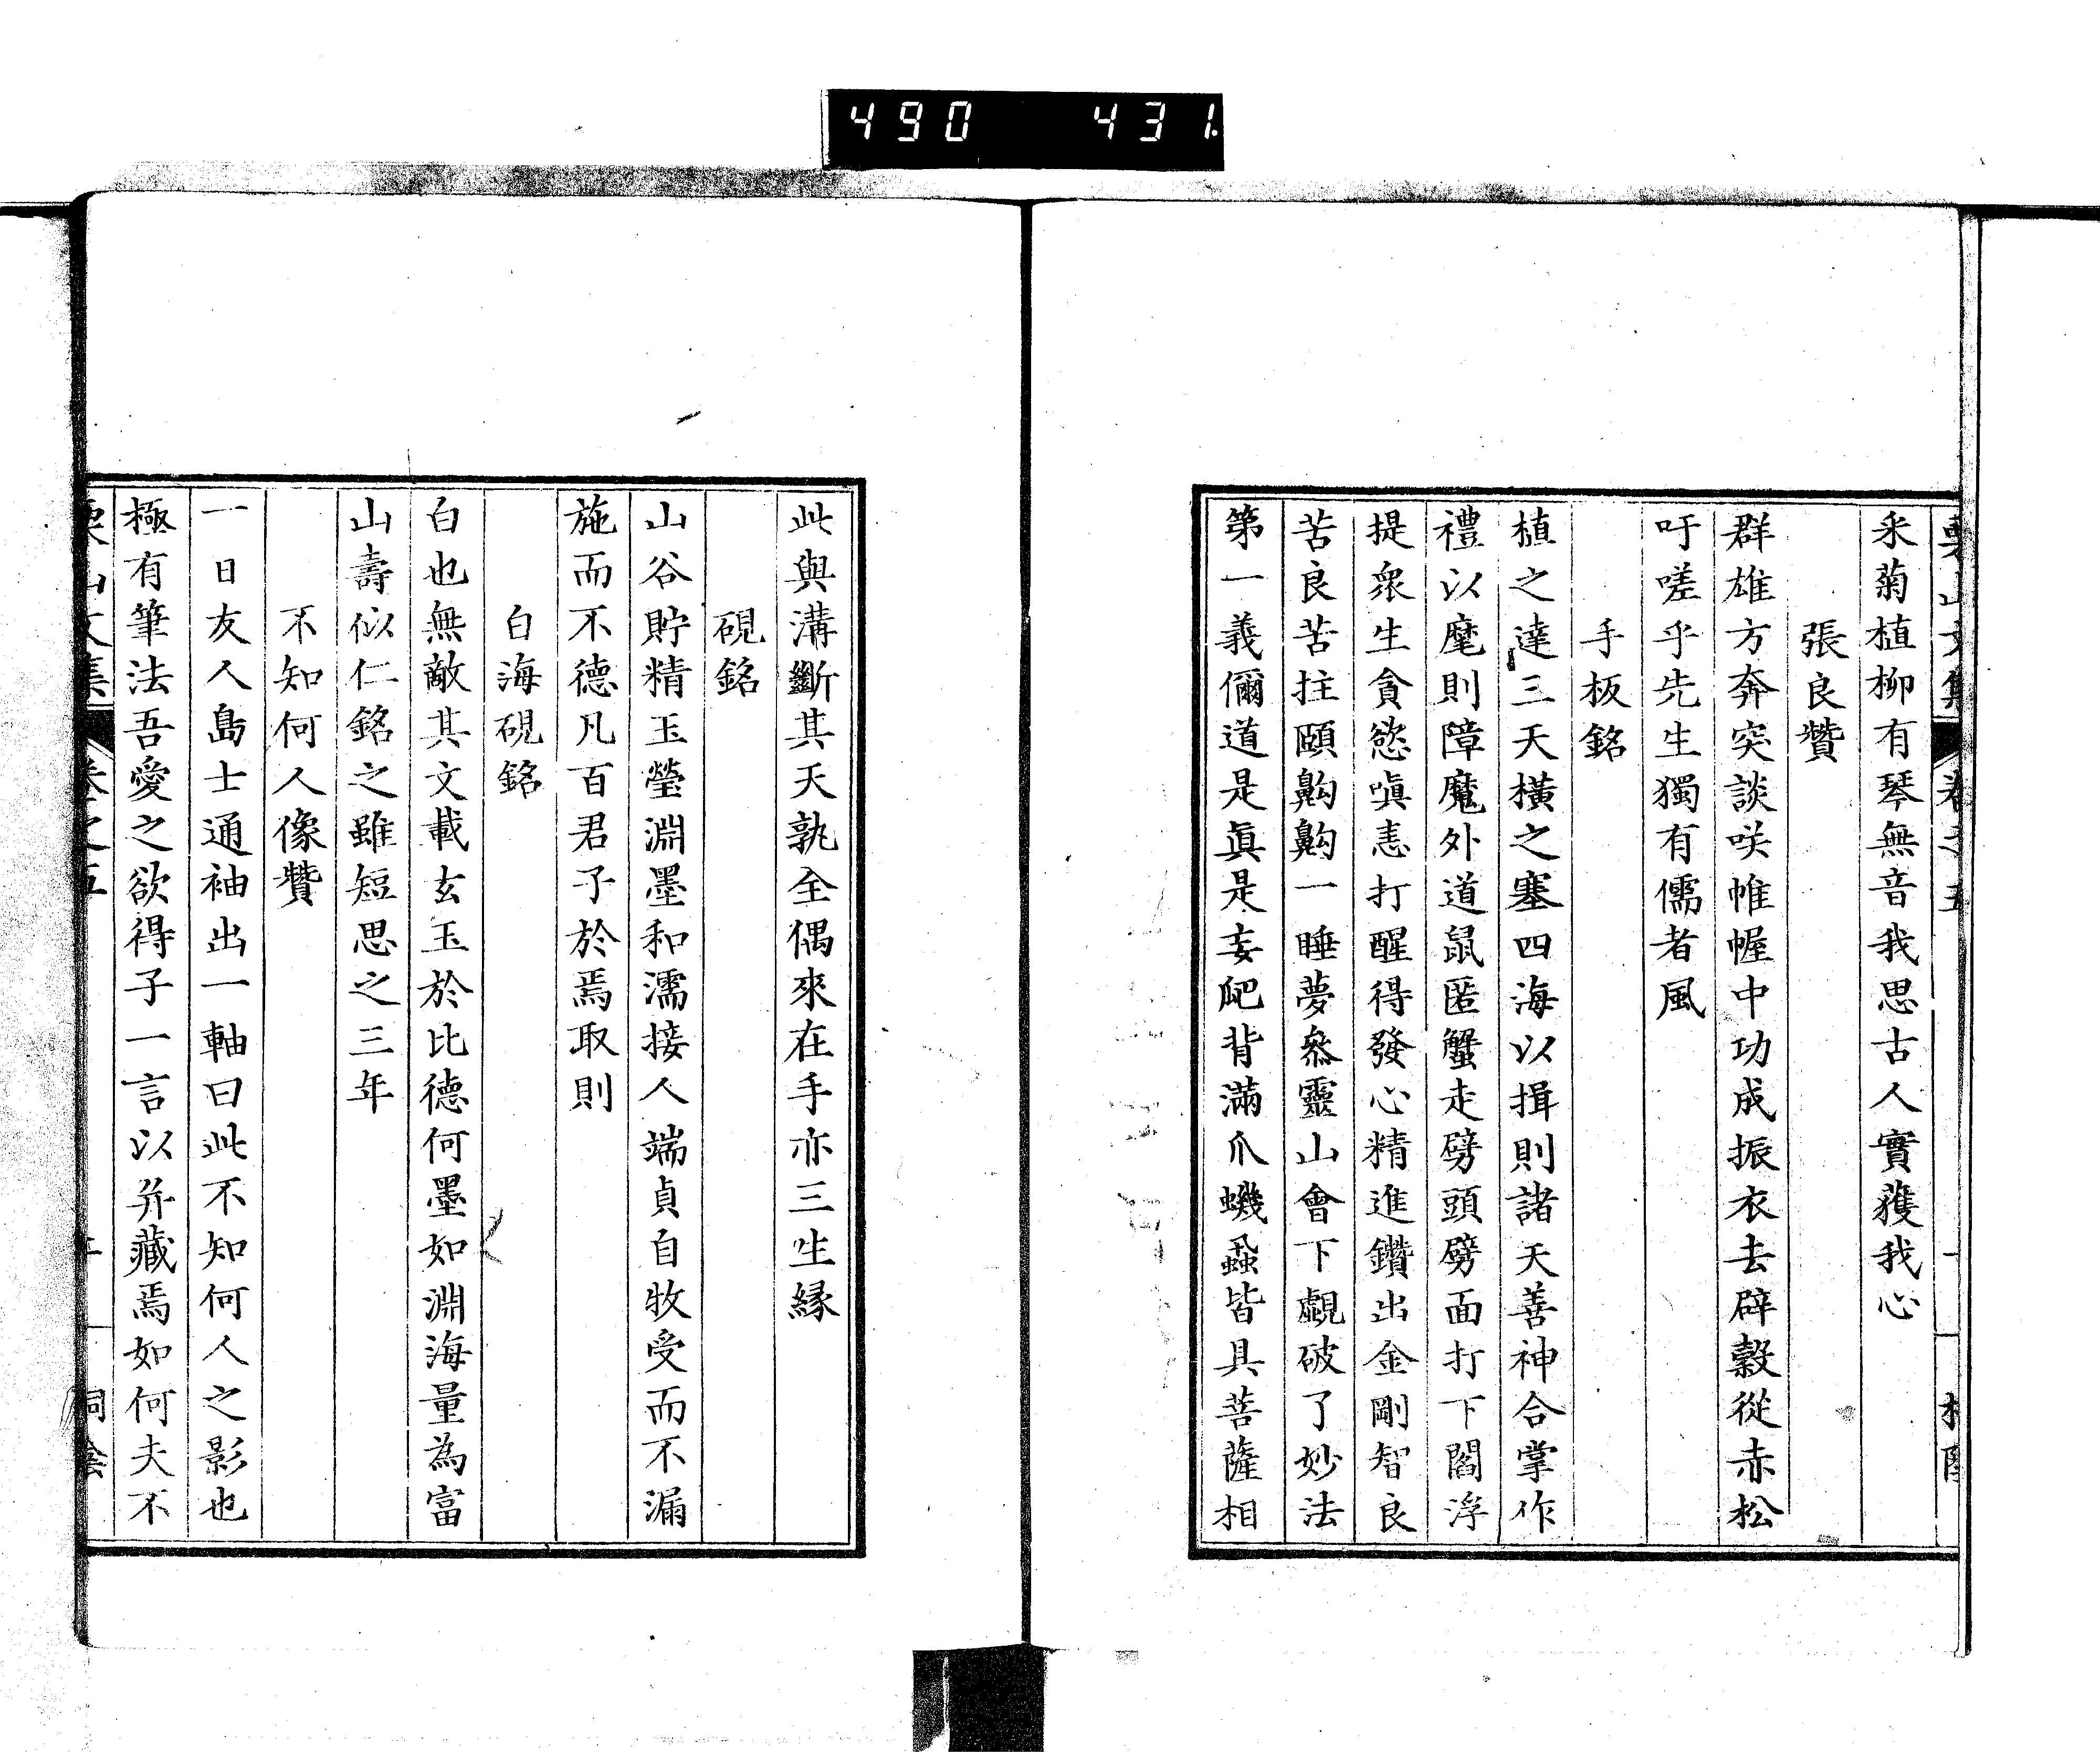 490 431
采菊植柳有琴無音我思古人實獲我心
張良贊
群雄方奔突談咲帷幄中功成振衣去辟穀從赤松
吁嗟乎先生獨有儒者風
手板銘
植之達三天橫之塞四海以揖則諸天善神合掌作
禮以麾則障魔外道鼠匿蟹走劈頭劈面打下閻浮
提衆生貪慾嗔恚打醒得發心精進鑽出金剛智良
苦良苦拄頤齁齁一睡夢叅靈山會下覷破了妙法
第一義儞道是眞是妄爬背滿爪蟣蝨皆具菩薩相
此與溝斷其天孰全偶來在手亦三生縁
硯銘
山谷貯精玉瑩淵墨和濡接人端貞自牧受而不漏
施而不德凡百君子於焉取則
白海硯銘
白也無敵其文載玄玉於比德何墨如淵海量為富
山壽似仁銘之雖短思之三年
不知何人像贊
一日友人島士通袖出一軸曰此不知何人之影也
極有筆法吾愛之欲得子一言以并藏焉如何夫不
文集 卷之五